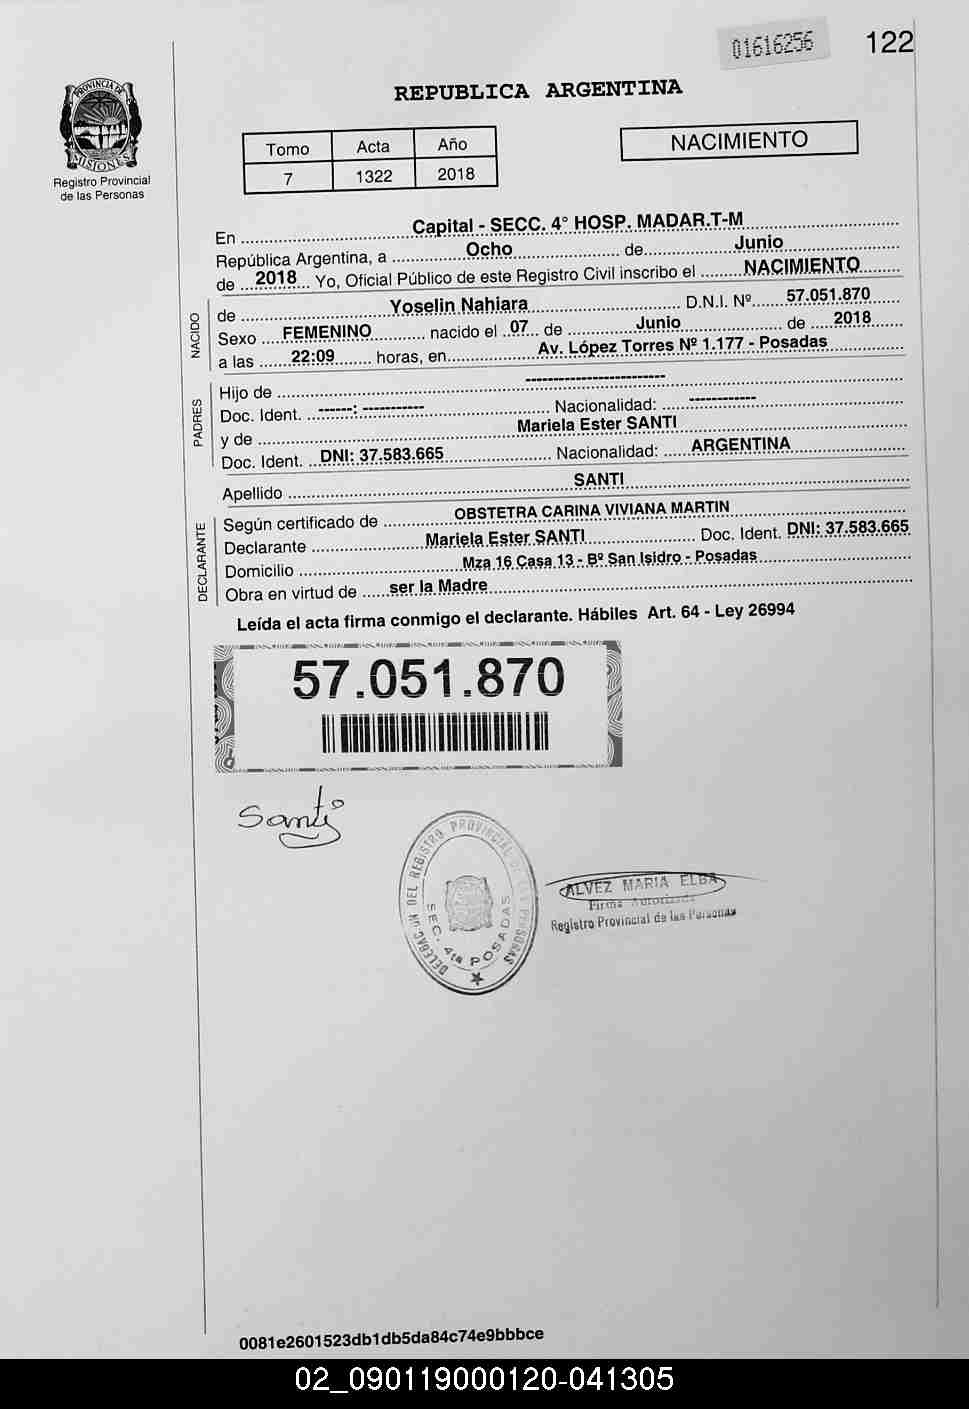 01616256
122
PROVINCIA DE
MISIONES
Registro Provincial
de las Personas
REPUBLICA ARGENTINA
Tomo Acta Año
7 1322 2018
NACIMIENTO
En Capital - SECC. 4° HOSP. MADAR.T-M
República Argentina, a Ocho de Junio
de 2018 Yo, Oficial Público de este Registro Civil inscribo el NACIMIENTO
NACIDO
de Yoselin Nahiara D.N.I. Nº 57.051.870
Sexo FEMENINO nacido el 07 de Junio de 2018
a las 22:09 horas, en Av. López Torres Nº 1.177 - Posadas
PADRES
Hijo de -------------------------
Doc. Ident. ------: ----------- Nacionalidad: ------------
y de Mariela Ester SANTI
Doc. Ident. DNI: 37.583.665 Nacionalidad: ARGENTINA
Apellido SANTI
DECLARANTE
Según certificado de OBSTETRA CARINA VIVIANA MARTIN
Declarante Mariela Ester SANTI Doc. Ident. DNI: 37.583.665
Domicilio Mza 16 Casa 13 - Bº San Isidro - Posadas
Obra en virtud de ser la Madre
Leída el acta firma conmigo el declarante. Hábiles Art. 64 - Ley 26994
57.051.870
Santi
DELEGACION DEL REGISTRO PROVINCIAL DE LAS PERSONAS
SEC. 4ta POSADAS
ALVEZ MARIA ELBA
Firma Autorizada
Registro Provincial de las Personas
0081e2601523db1db5da84c74e9bbbce
02_090119000120-041305